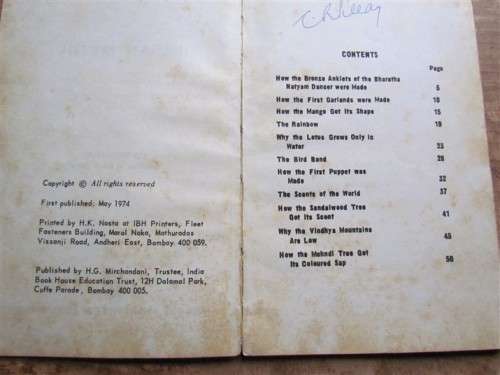 Copyright © All rights reserved
First published: May 1974
Printed by H.K. Nasta at IBH Printers, Fleet
Fasteners Engg., Marol Naka, Mathuradas
Vissanji Road, Andheri East, Bombay 400 059.
Published by H.G. Mirchandani, Trustee, India
Book House Education Trust, 12H Dalamal Park,
Cuffe Parade, Bombay 400 005.
CONTENTS
Page
How the Bronze Anklets of the Bharatha
Natyam Dancer were Made 5
How the First Garlands were Made 10
How the Mango Got Its Shape 15
The Rainbow 19
Why the Lotus Grows Only in
Water 23
The Bird Band 28
How the First Puppet was
Made 32
The Scents of the World 37
How the Sandalwood Tree
Got Its Scent 41
Why the Vindhya Mountains
Are Low 45
How the Mehndi Tree Got
Its Coloured Sap 50